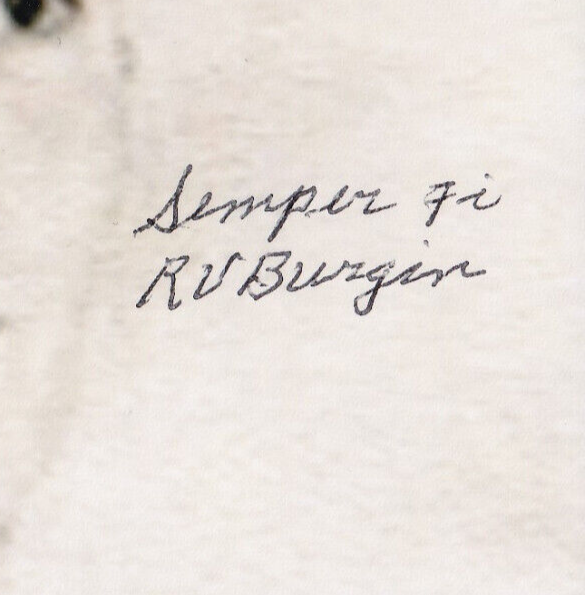 Semper Fi
RV Burgin